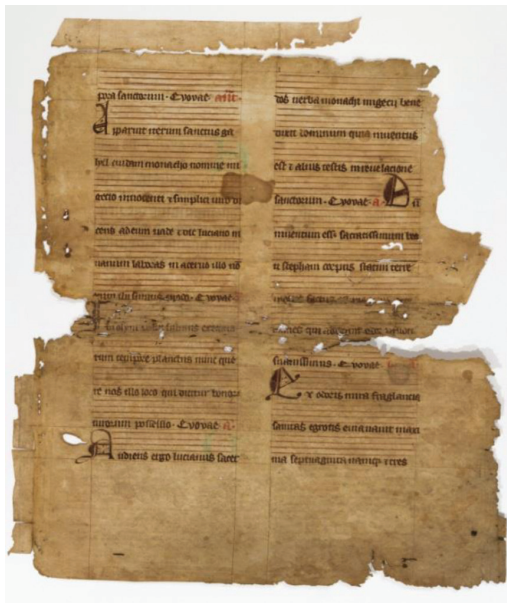 pora sanctorum · Evovae · ant·
Aparuit iterum sanctus ga
liel cuidam monacho nomine mi
gecio innocenti ⁊ simplici viro di
cens ad eum vade ⁊ dic luciano in
uanum laboras in aceruo illo nō
enim ibi sumus modo · Evovae·
rum tempore planctus nunc que
re nos illo loco qui dicitur
uirorum possessio · Evovae · a·
Audiens ergo lucianus sacer
dos verba monachi migecii bene
dixit dominum quia inuentus
est ⁊ alius testis in reuelacione
sanctorum · Evovae · a· Cū
inuentum esset sacratissimum bea
ti stephani corpus statim terre
motus factus est
qui
suauissimus · Evovae·
Ex odoris mira fraglancia
sanitas egrotis emanauit maxi
ma septuaginta namq; ⁊ tres